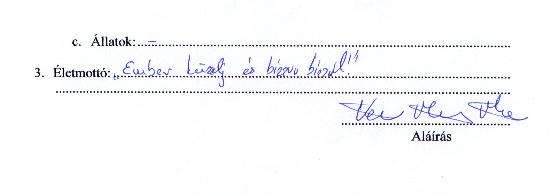 c. Állatok: –
3. Életmottó: „Ember küzdj és bízva bízzál!"
Aláírás